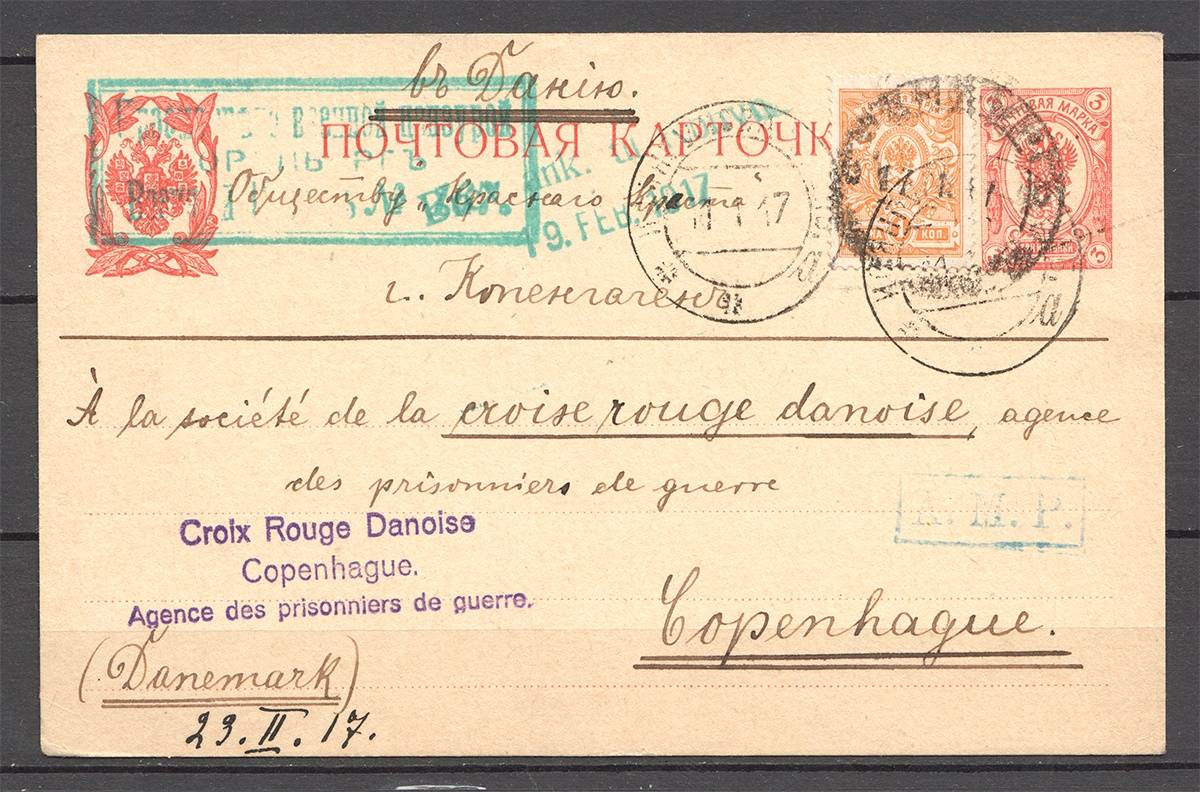 въ Данію.
ПОЧТОВАЯ КАРТОЧК
военной цензурой
Обществу „Краснаго Креста
г. Копенгагенъ
№ 367.
Ank.
9. FEB. 1917
1 17
КОП.
3
МАРКА
3
a
a
À la société de la croise rouge danoise, agence
des prisonniers de guerre
A. M. P.
Croix Rouge Danoise
Copenhague.
Agence des prisonniers de guerre.
Copenhague.
(Danemark)
23. II. 17.